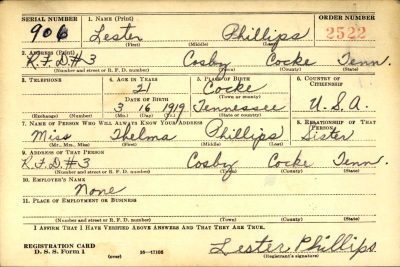 SERIAL NUMBER 1. NAME (Print) ORDER NUMBER
906 Lester Phillips 2522
(First) (Middle) (Last)
2. ADDRESS (Print)
R.F.D.#3 Cosby Cocke Tenn.
(Number and street or R. F. D. number) (Town) (County) (State)
3. TELEPHONE 4. AGE IN YEARS 5. PLACE OF BIRTH 6. COUNTRY OF CITIZENSHIP
21 Cocke
(Town or county)
DATE OF BIRTH
3 16 1919 Tennessee U.S.A.
(Exchange) (Number) (Mo.) (Day) (Yr.) (State or country)
7. NAME OF PERSON WHO WILL ALWAYS KNOW YOUR ADDRESS 8. RELATIONSHIP OF THAT PERSON
Miss Thelma Phillips Sister
(Mr., Mrs., Miss) (First) (Middle) (Last)
9. ADDRESS OF THAT PERSON
R.F.D.#3 Cosby Cocke Tenn.
(Number and street or R. F. D. number) (Town) (County) (State)
10. EMPLOYER'S NAME
None
11. PLACE OF EMPLOYMENT OR BUSINESS
(Number and street or R. F. D. number) (Town) (County) (State)
I AFFIRM THAT I HAVE VERIFIED ABOVE ANSWERS AND THAT THEY ARE TRUE.
REGISTRATION CARD
D. S. S. Form 1 (over) 16—17105
Lester Phillips
(Registrant's signature)